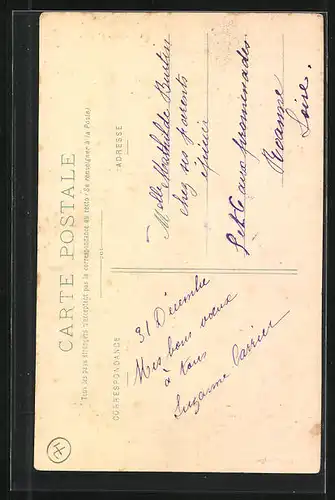 CARTE POSTALE
Tous les pays étrangers n'acceptent pas la correspondance au recto (Se renseigner à la Poste)
CORRESPONDANCE
ADRESSE
31 Décembre
Mes bons vœux
à tous
Suzanne Carrier
Melle Mathilde Burtin
chez ses parents
épicier
Pet C aux promenades
Roanne
Loire.